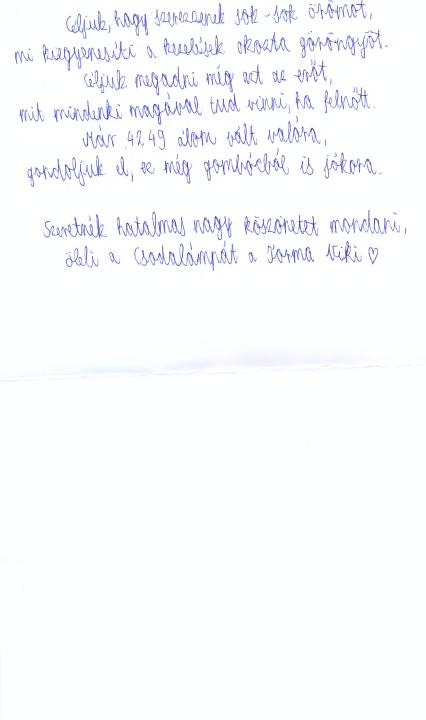 Céljuk, hogy szerezzenek sok-sok örömöt,
mi kiegyenesíti a kezelések okozta göröngyöt.
Céljuk megadni még ezt az erőt,
mit mindenki magával tud vinni, ha felnőtt.
Már 4249 álom vált valóra,
gondoljuk el, ez még gombócból is jókora.
Szeretnék hatalmas nagy köszönetet mondani,
öleli a Csodalámpát a Torma Viki ♡